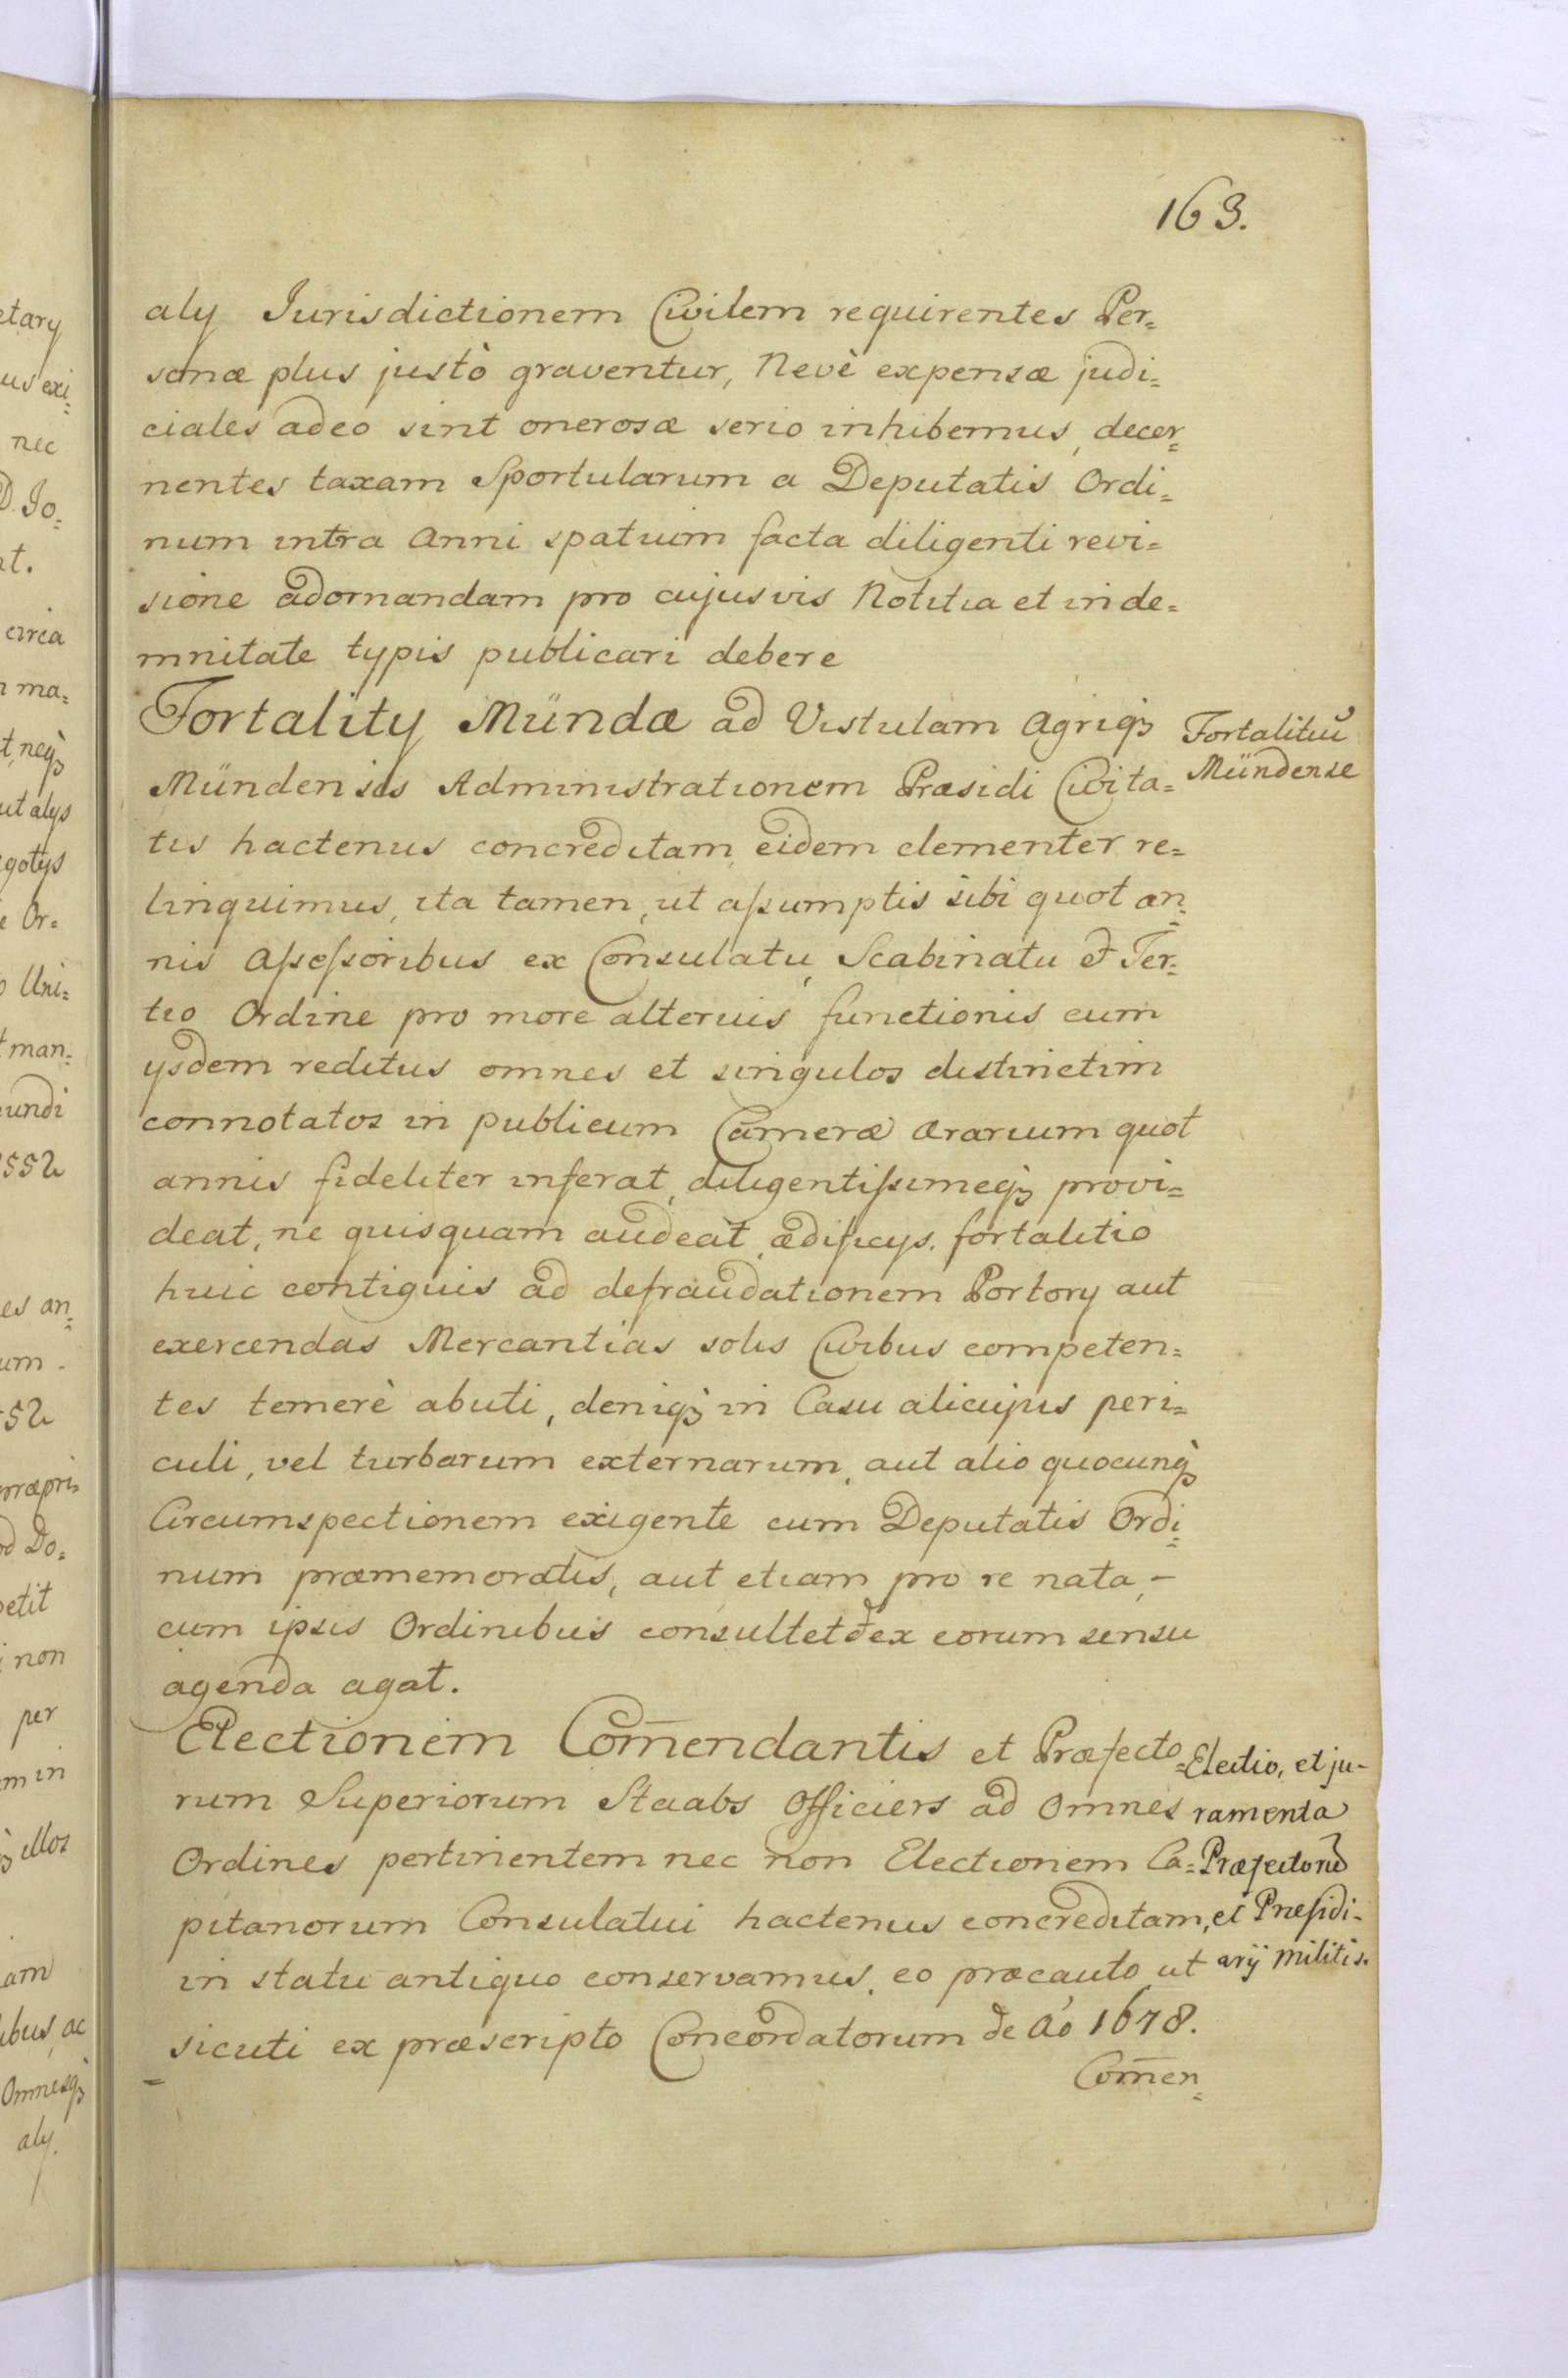 163.
alÿ Jurisdictionem Civilem requirentes Per=
sonæ plus justò graventur, Nevè expensæ judi=
ciales adeo sint onerosæ serio inhibemus, decer=
nentes taxam Sportularum a Deputatis Ordi=
num intra Anni spatium facta diligenti revi=
sione adornandam pro cujusvis Notitia et inde=
mnitate typis publicari debere
Fortalitÿ Mündæ ad Vistulam Agriqꝫ
Mündensis Administrationem Præsidi Civita=
tis hactenus concreditam, eidem clementer re=
linquimus, ita tamen, ut aſsumptis sibi quot an=
nis Aſseſsoribus ex Consulatu, Scabinatu et Ter=
tio Ordine pro more alterius functionis cum
ÿsdem reditus omnes et singulos distinctim
connotatos in publicum Cameræ Ærarium quot
annis fideliter inferat, diligentiſsimeqꝫ provi=
deat, ne quisquam audeat ædificÿs fortalitio
huic contiguis ad defraudationem Portorÿ aut
exercendas Mercantias solis Civibus competen=
tes temerè abuti, deniqꝫ in Casu alicujus peri=
culi, vel turbarum externarum, aut alio quocunqꝫ
Circumspectionem exigente cum Deputatis Ordi=
num præmemoratis, aut etiam pro re nata, –
cum ipsis Ordinibus consultet et ex eorum sensu
agenda agat.
Electionem Com̄endantis et Præfecto=
rum Superiorum Staabs Officiers ad Omnes
Ordines pertinentem nec non Electionem Ca=
pitanorum Consulatui hactenus concreditam,
in statu antiquo conservamus, eo præcauto, ut
sicuti ex præscripto Concordatorum de Aó 1678.
Com̄en=
Fortalitiū
Mündense
Electio, et ju-
ramenta
Præfectorū
et Præſidi-
arÿ Militis.